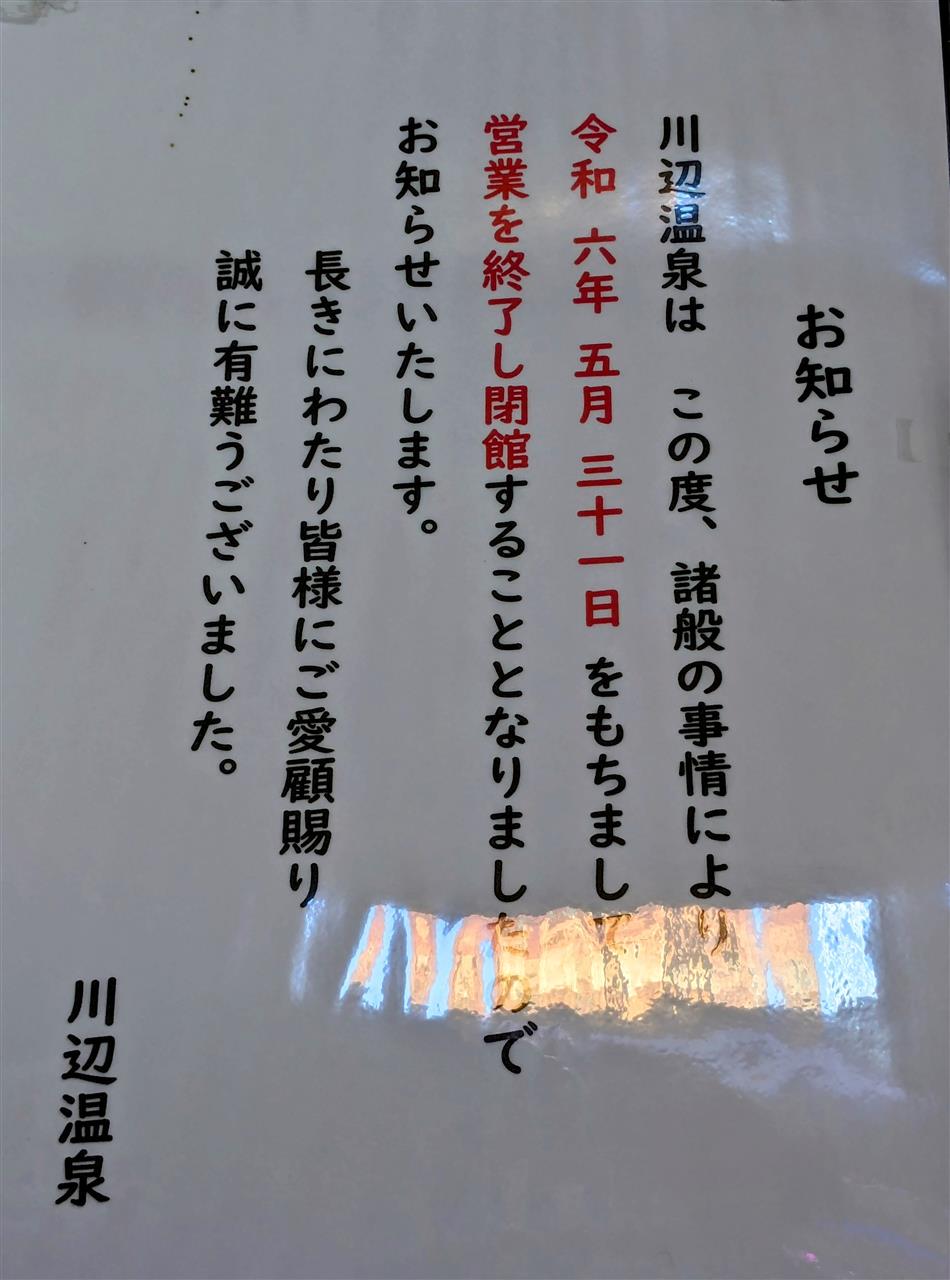 お知らせ
川辺温泉は　この度、諸般の事情により
令和 六年 五月 三十一日 をもちまして
営業を終了し閉館することとなりましたので
お知らせいたします。
長きにわたり皆様にご愛顧賜り
誠に有難うございました。
川辺温泉